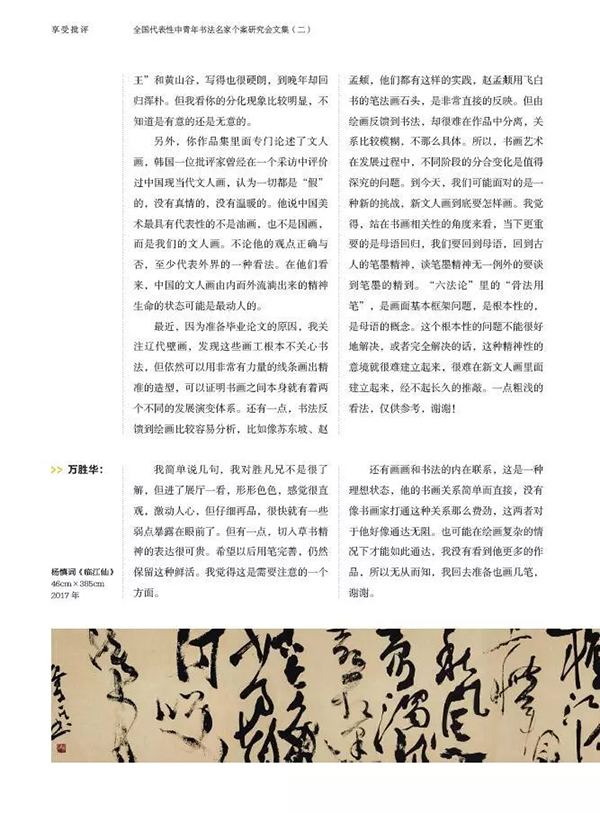 享受批评
全国代表性中青年书法名家个案研究会文集（二）
王”和黄山谷，写得也很硬朗，到晚年却回
归浑朴。但我看你的分化现象比较明显，不
知道是有意的还是无意的。
另外，你作品集里面专门论述了文人
画，韩国一位批评家曾经在一个采访中评价
过中国现当代文人画，认为一切都是“假”
的，没有真情的，没有温暖的。他说中国美
术最具有代表性的不是油画，也不是国画，
而是我们的文人画。不论他的观点正确与
否，至少代表外界的一种看法。在他们看
来，中国的文人画由内而外流淌出来的精神
生命的状态可能是最动人的。
最近，因为准备毕业论文的原因，我关
注辽代壁画，发现这些画工根本不关心书
法，但依然可以用非常有力量的线条画出精
准的造型，可以证明书画之间本身就有着两
个不同的发展演变体系。还有一点，书法反
馈到绘画比较容易分析，比如像苏东坡、赵
孟頫，他们都有这样的实践，赵孟頫用飞白
书的笔法画石头，是非常直接的反映。但由
绘画反馈到书法，却很难在作品中分离，关
系比较模糊，不那么具体。所以，书画艺术
在发展过程中，不同阶段的分合变化是值得
深究的问题。到今天，我们可能面对的是一
种新的挑战，新文人画到底要怎样画。我觉
得，站在书画相关性的角度来看，当下更重
要的是母语回归，我们要回到母语，回到古
人的笔墨精神，谈笔墨精神无一例外的要谈
到笔墨的精到。“六法论”里的“骨法用
笔”，是画面基本框架问题，是根本性的，
是母语的概念。这个根本性的问题不能很好
地解决，或者完全解决的话，这种精神性的
意境就很难建立起来，很难在新文人画里面
建立起来，经不起长久的推敲。一点粗浅的
看法，仅供参考，谢谢！
>> 万胜华：
我简单说几句，我对胜凡兄不是很了
解，但进了展厅一看，形形色色，感觉很直
观，激动人心，但仔细再品，很快就有一些
弱点暴露在眼前了。但有一点，切入草书精
神的表达很可贵。希望以后用笔完善，仍然
保留这种鲜活。我觉得这是需要注意的一个
方面。
还有画画和书法的内在联系，这是一种
理想状态，他的书画关系简单而直接，没有
像书画家打通这种关系那么费劲，这两者对
于他好像通达无阻。也可能在绘画复杂的情
况下才能如此通达，我没有看到他更多的作
品，所以无从而知，我回去准备也画几笔，
谢谢。
杨慎词《临江仙》
46cm×385cm
2017 年